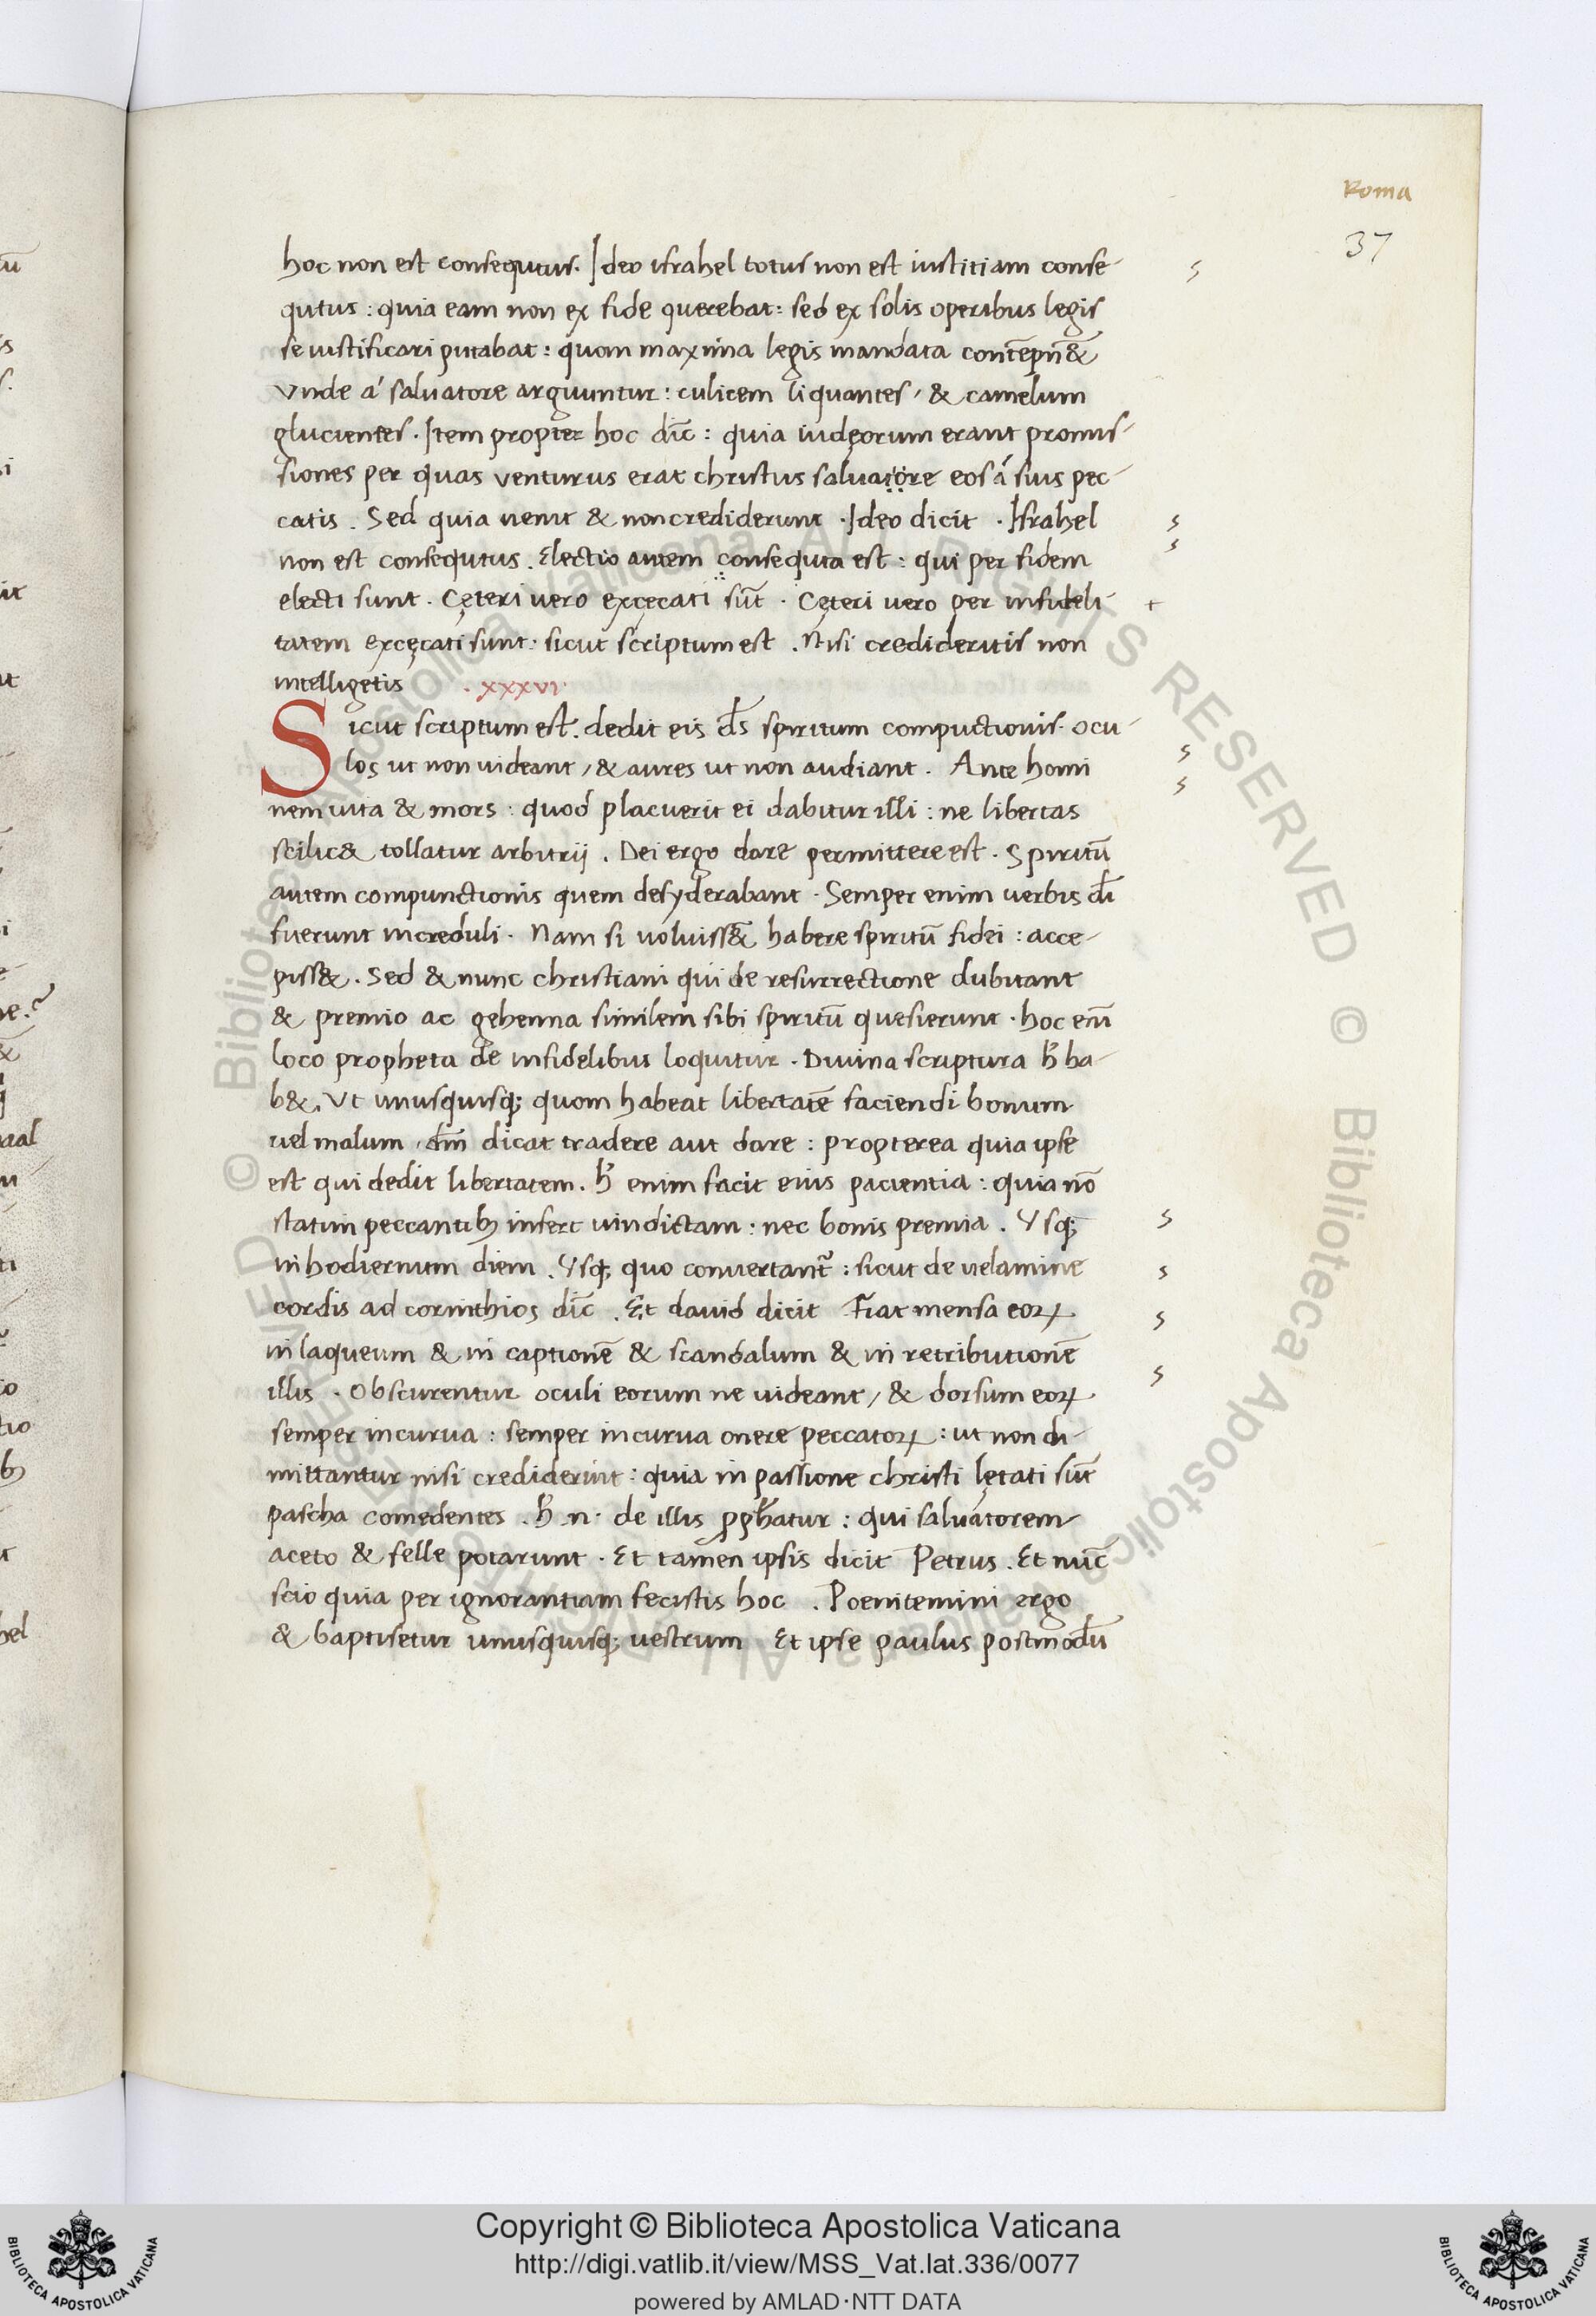 Roma
37
hoc non est consequtus. Ideo israhel totus non est iustitiam conse-
qutus : quia eam non ex fide querebat : sed ex solis operibus legis
se iustificari putabat : quom maxima legis mandata contēpn̄&
Vnde á saluatore arguuntur : culicem liquantes, & camelum
glucientes. Item propter hoc dic̄ : quia iudęorum erant promis-
siones per quas venturus erat christus saluatore eos á suis pec-
catis. Sed quia uenit & non crediderunt. Ideo dicit. Israhel
non est consequtus. Electio autem consequta est : qui per fidem
electi sunt. Cęteri uero excęcati sūt. Cęteri uero per infideli-
tatem excęcati sunt : sicut scriptum est. Nisi credideritis non
intelligetis . xxxvi.
Sicut scriptum est. dedit eis d̄s spiritum compuctionis. ocu-
los ut non uideant, & aures ut non audiant. Ante homi
nem uita & mors : quod placuerit ei dabitur illi : ne libertas
scilic& tollatur arbitrij. Dei ergo dare permittere est. Spiritū
autem compunctionis quem desyderabant. Semper enim uerbis d̄i
fuerunt increduli. Nam si uoluiss& habere spiritū fidei : acce-
piss&. Sed & nunc christiani qui de resurrectione dubitant
& premio ac gehenna similem sibi spiritū quesierunt. hoc enī
loco propheta de infidelibus loquitur. Diuina scriptura h̄ ha-
b&. Vt unusquisq; quom habeat libertatē faciendi bonum
uel malum, dm̄ dicat tradere aut dare : propterea quia ipse
est qui dedit libertatem. h̄ enim facit eius pacientia : quia nō
statim peccantib; infert uindictam : nec bonis premia. Vsq;
in hodiernum diem. Vsq; quo conuertant̄ : sicut de uelamine
cordis ad corinthios dic̄. Et dauid dicit Fiat mensa eoꝝ
in laqueum & in captionē & scandalum & in retributionē
illis. Obscurentur oculi eorum ne uideant, & dorsum eoꝝ
semper incurua : semper incurua onere peccatoꝝ : ut non di-
mittantur nisi crediderint : quia in passione christi lętati sūt
pascha comedentes. h̄ .n. de illis ꝓph̄atur : qui saluatorem
aceto & felle potarunt. Et tamen ipsis dicit Petrus. Et nūc
scio quia per ignorantiam fecistis hoc. Poenitemini ergo
& baptisetur unusquisq; uestrum Et ipse paulus postmodū
Copyright © Biblioteca Apostolica Vaticana
http://digi.vatlib.it/view/MSS_Vat.lat.336/0077
powered by AMLAD·NTT DATA